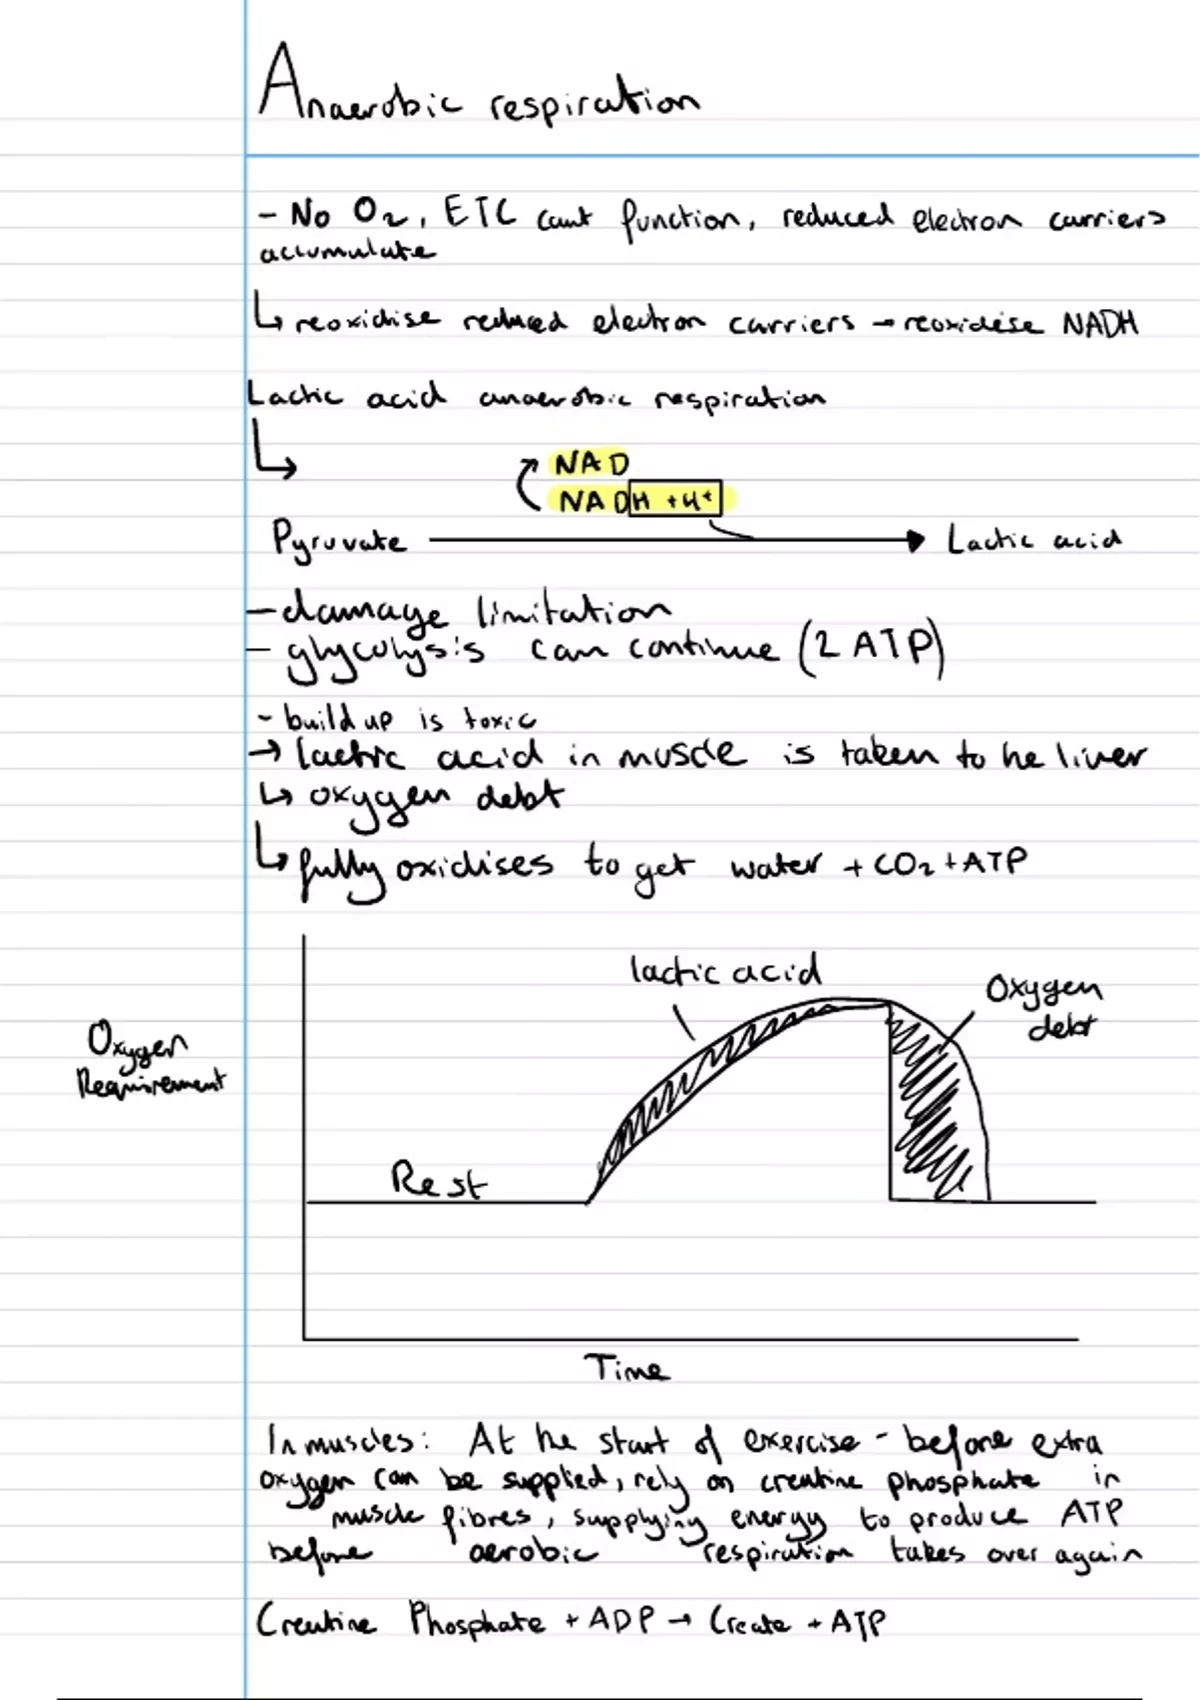 Anaerobic respiration
- No O2, ETC cant function, reduced electron carriers
accumulate
↳ reoxidise reduced electron carriers → reoxidise NADH
Lactic acid anaerobic respiration
↳
NAD
NADH + H+
Pyruvate → Lactic acid
- damage limitation
- glycolysis can continue (2 ATP)
- build up is toxic
→ lactic acid in muscle is taken to he liver
↳ oxygen debt
↳ fully oxidises to get water + CO2 + ATP
lactic acid
Oxygen
debt
Oxygen
Requirement
Rest
Time
In muscles: At the start of exercise - before extra
oxygen can be supplied, rely on creatine phosphate in
muscle fibres, supplying energy to produce ATP
before aerobic respiration takes over again
Creatine Phosphate + ADP → Create + ATP